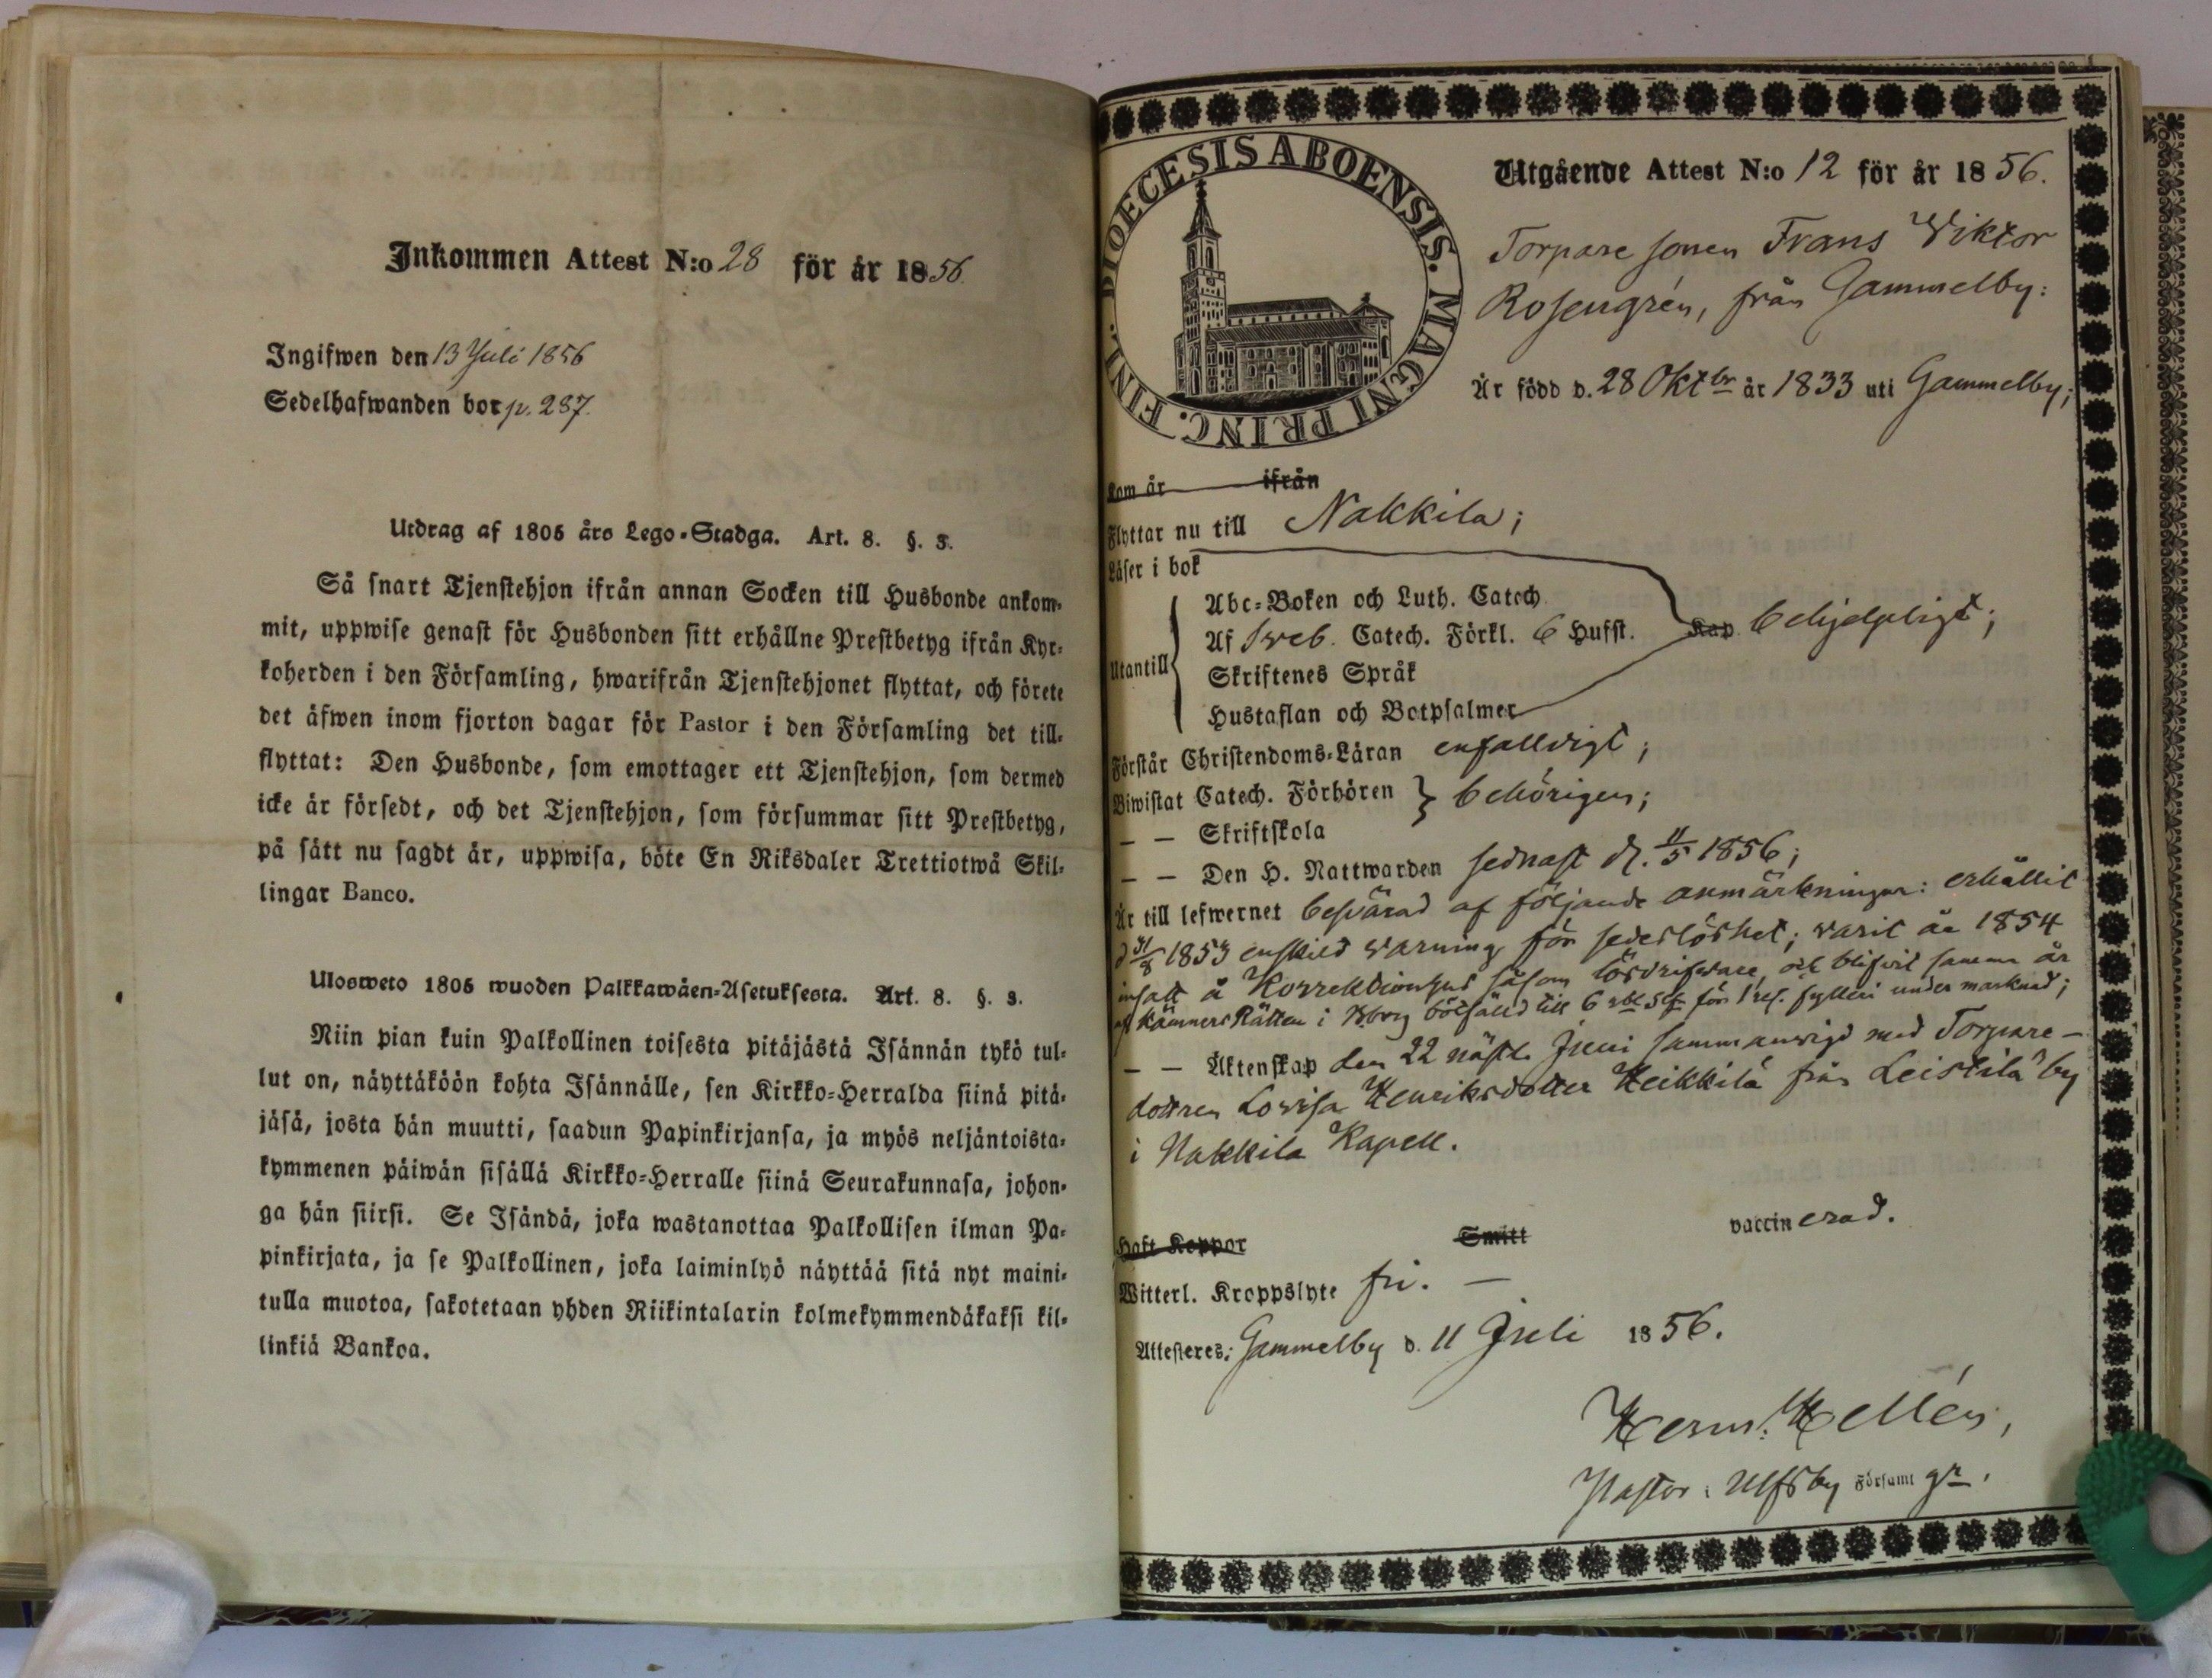 Inkommen Attest N:o 28 för år 1856.
Ingifwen den 13 Juli 1856
Sedelhafwanden bor p. 287.
Utdrag af 1805 års Lego-Stadga. Art. 8. §. 3.
Så snart Tjenstehjon ifrån annan Socken till Husbonde ankom-
mit, uppwise genast för Husbonden sitt erhållne Prestbetyg ifrån Kyr-
koherden i den Församling, hwarifrån Tjenstehjonet flyttat, och förete
det äfwen inom fjorton dagar för Pastor i den Församling det till-
flyttat: Den Husbonde, som emottager ett Tjenstehjon, som dermed
icke är försedt, och det Tjenstehjon, som försummar sitt Prestbetyg,
på sätt nu sagdt är, uppwisa, böte En Riksdaler Trettiotwå Skil-
lingar Banco.
Ulosweto 1805 wuoden Palkkawäen-Asetuksesta. Art. 8. §. 3.
Niin pian kuin Palkollinen toisesta pitäjästä Isännän tykö tul-
lut on, näyttäköön kohta Isännälle, sen Kirkko-Herralda siinä pitä-
jäsä, josta hän muutti, saadun Papinkirjansa, ja myös neljäntoista-
kymmenen päiwän sisällä Kirkko-Herralle siinä Seurakunnasa, johon-
ga hän siirsi. Se Isändä, joka wastanottaa Palkollisen ilman Pa-
pinkirjata, ja se Palkollinen, joka laiminlyö näyttää sitä nyt maini-
tulla muotoa, sakotetaan yhden Riikintalarin kolmekymmendäkaksi kil-
linkiä Bankoa.
DIOECESIS ABOENSIS. MAGNI PRINC. FINL.
Utgående Attest N:o 12 för år 1856.
Torpare sonen Frans Wiktor
Rosengrén, från Gammelby:
Är född d. 28 Oktbr år 1833 uti Gammelby;
Kom år ifrån
Flyttar nu till Nakkila;
Läser i bok
Abc-Boken och Luth. Catech.
Af Sveb. Catech. Förkl. 6 Hufst. Kap behjelpligt;
Utantill
Skriftenes Språk
Hustaflan och Botpsalmer
Förstår Christendoms-Läran enfalldigt;
Biwistat Catech. Förhören } behörigen;
— — Skriftskola
— — Den H. Nattwarden sednast d. 11/5 1856;
Är till lefwernet besvärad af följande anmärkningar: erhållit
d 31/8 1853 enskild varning för sedeslöshet; varit år 1854
insatt å Korrektionshus såsom lösdrifvare, och blifvit samma år
af KämnersRätten i Bborg bötfälld till 6 rbl för 1 res. fylleri under marknad;
— — Äktenskap den 22 nästl. Juni sammanvigd med Torpare-
dottren Lovisa Henriksdotter Heikkilä från Leistilä by
i Nakkila Kapell.
Haft Koppor Smitt vaccinerad.
Witterl. Kroppslyte fri. —
Attesteres; Gammelby d. 11 Juli 1856.
Herm: Hellén,
Pastor i Ulfsby Församl gr.